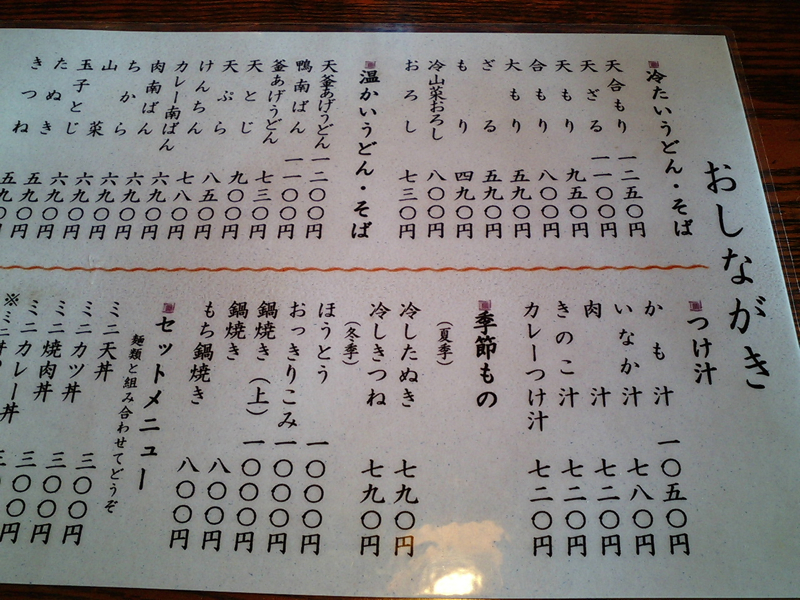 おしながき
冷たいうどん・そば
天合もり 一二五〇円
天ざる 一一〇〇円
天もり 九五〇円
合もり 八〇〇円
大もり 五九〇円
ざる 五九〇円
もり 四九〇円
冷山菜おろし 八〇〇円
おろし 七三〇円
温かいうどん・そば
天釜あげうどん 一二〇〇円
鴨南ばん 一一〇〇円
釜あげうどん 七三〇円
天とじ 九〇〇円
天ぷら 八五〇円
けんちん 七八〇円
カレー南ばん 六九〇円
肉南ばん 六九〇円
ちから 六九〇円
山菜 六九〇円
玉子とじ 六九〇円
たぬき 五九〇円
きつね 五九〇円
つけ汁
かも汁 一〇五〇円
いなか汁 七八〇円
肉汁 七二〇円
きのこ汁 七二〇円
カレーつけ汁 七二〇円
季節もの
(夏季)
冷したぬき 七九〇円
冷しきつね 七九〇円
(冬季)
ほうとう 一〇〇〇円
おっきりこみ 一〇〇〇円
鍋焼き(上) 一〇〇〇円
鍋焼き 八〇〇円
もち鍋焼き 八〇〇円
セットメニュー
麺類と組み合わせてどうぞ
ミニ天丼 三〇〇円
ミニカツ丼 三〇〇円
ミニ焼肉丼 三〇〇円
ミニカレー丼
※ミニ丼